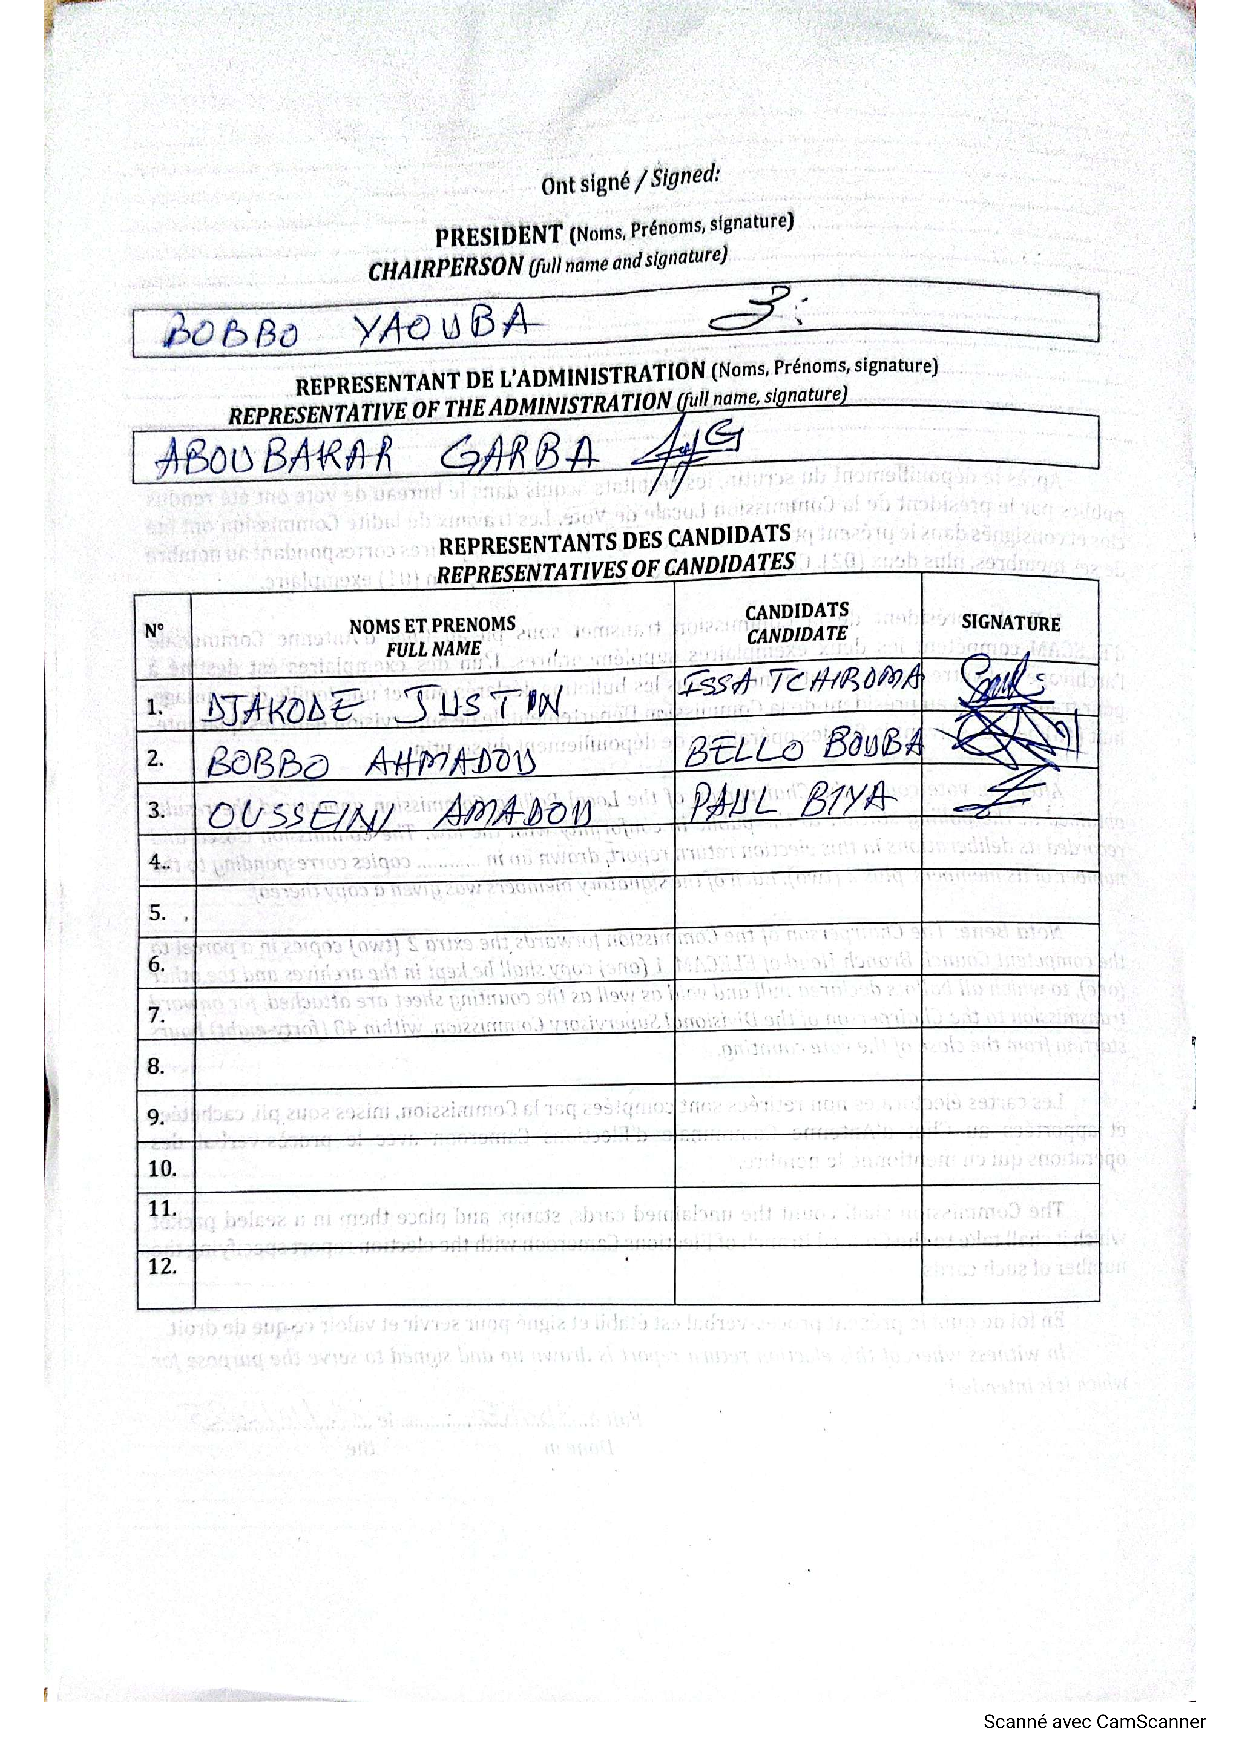 Ont signé / Signed:
PRESIDENT (Noms, Prénoms, signature)
CHAIRPERSON (full name and signature)
BOBBO YAOUBA
REPRESENTANT DE L'ADMINISTRATION (Noms, Prénoms, signature)
REPRESENTATIVE OF THE ADMINISTRATION (full name, signature)
ABOUBAKAR GARBA
REPRESENTANTS DES CANDIDATS
REPRESENTATIVES OF CANDIDATES
N° NOMS ET PRENOMS CANDIDATS SIGNATURE
FULL NAME CANDIDATE
1. DJAKODE JUSTIN ISSA TCHIROMA
2. BOBBO AHMADOU BELLO BOUBA
3. OUSSEINI AMADOU PAUL BIYA
4.
5.
6.
7.
8.
9.
10.
11.
12.
Scanné avec CamScanner